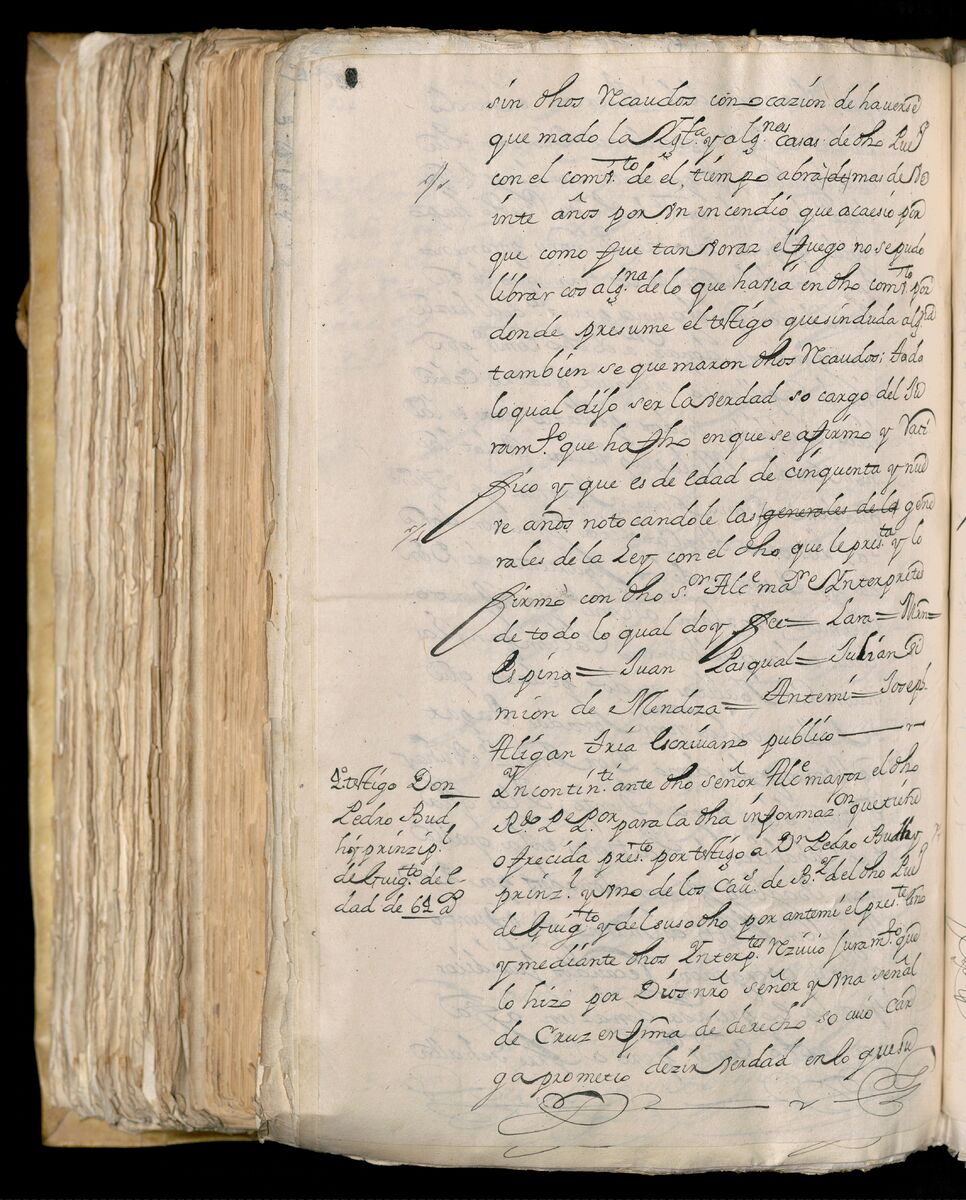 sin dhos Rcaudos con ocazión de haverse
quemado la Yglª. y algnas. casas de dho Pueº
con el comvto. de el, tiempo abrà de mas de ve
inte años por vn incendio que acaesio por
que como fue tan voraz el fuego no se pudo
libràr cos algna. de lo que haria en dho comvto. por
donde presume el testigo que sin duda algna
tambien se quemaron dhos Rcaudos; todo
lo qual dijo ser la verdad so cargo del Ju
ramto. que ha fho en que se afirmo y Rati
fico y que es de edad de cinquenta y nue
ve años no tocandole las generales de la gene
rales de la Ley con el dho que le presta. y lo
firmò con dho sor. Alce mar e Ynterpretes
de todo lo qual doy fee = Lara = Mrn =
Espina = Juan Pasqual = Julian Si
mion de Mendoza = Antemi = Joseph
Aligan Tria Escrivano publico
Yncontinti. ante dho señor Alce mayor el dho
Rdo. Pe Por. para la dha informazon que tiene
ofrecida presto. por testigo a Dn Pedro Budhiy
prinzl. y vno de los Cav. de By. del dho Pueº
de Guigto y del suso dho por antemi el preste. Essno
y mediante dhos Ynterptes Rzivio juramto. que
lo hizo por Dios nro señor y vna señal
de Cruz en frma de derecho so cuio car
ga prometio dezir verdad en lo que su
4º testigo Don
Pedro Bud
hiy prinzipl.
de Guigto. de e-
dad de 61 aº